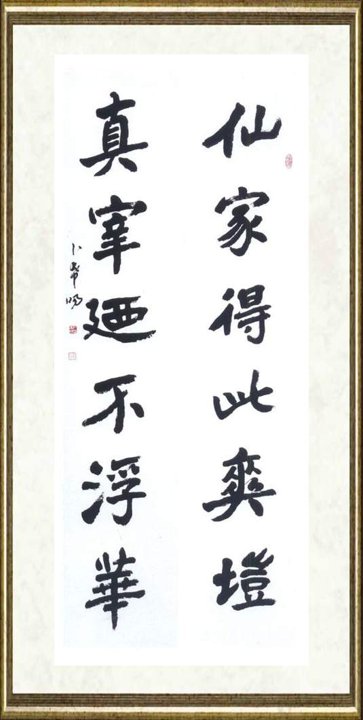 仙家得此爽塏
真宰廼不浮華
卜希暘